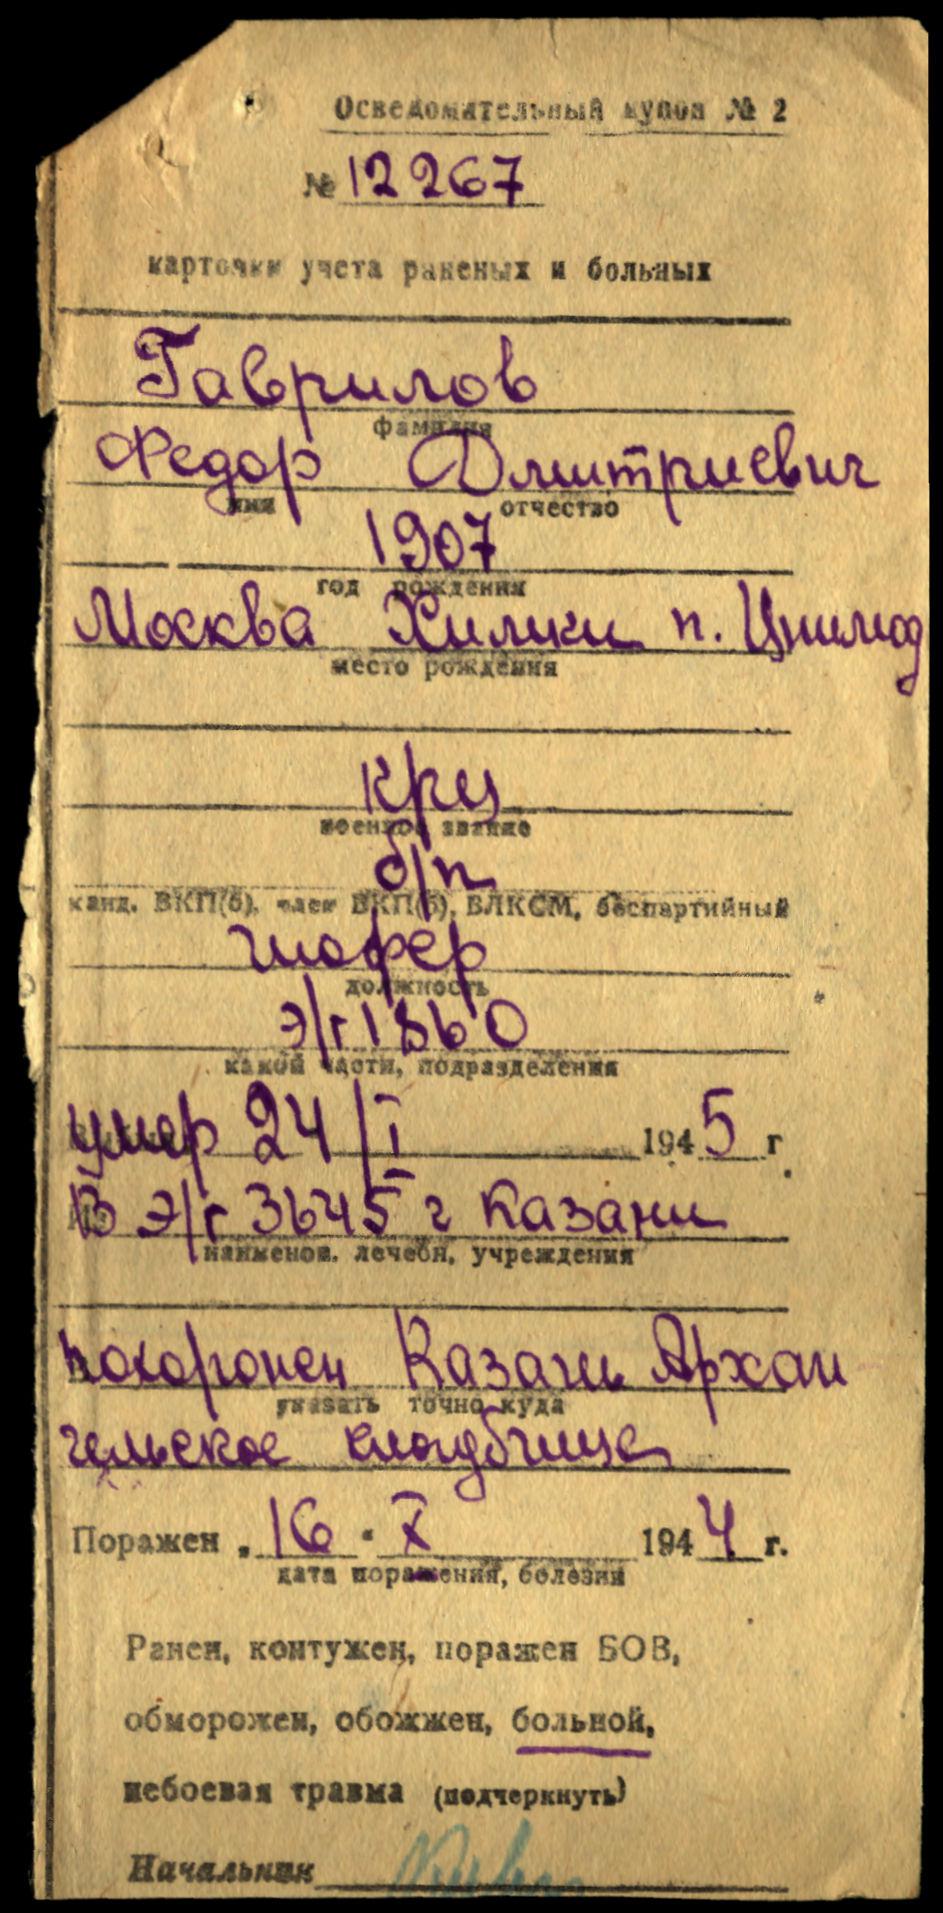 Осведомительный купон № 2
№ 12267
карточки учета раненых и больных
Гаврилов
фамилия
Федор Дмитриевич
имя отчество
1907
год рождения
Москва Химки п.
место рождения
кр/ц
военное звание
б/п
канд. ВКП(б), член ВКП(б), ВЛКСМ, беспартийный
шофер
должность
э/г 1860
какой части, подразделения
умер 24/I 1945 г.
В э/г 3645 г Казани
наименов. лечебн. учреждения
похоронен Казань Архан
указать точно куда
гельское кладбище
Поражен „16“ X 1944 г.
дата поражения, болезни
Ранен, контужен, поражен БОВ,
обморожен, обожжен, больной,
небоевая травма (подчеркнуть)
Начальник